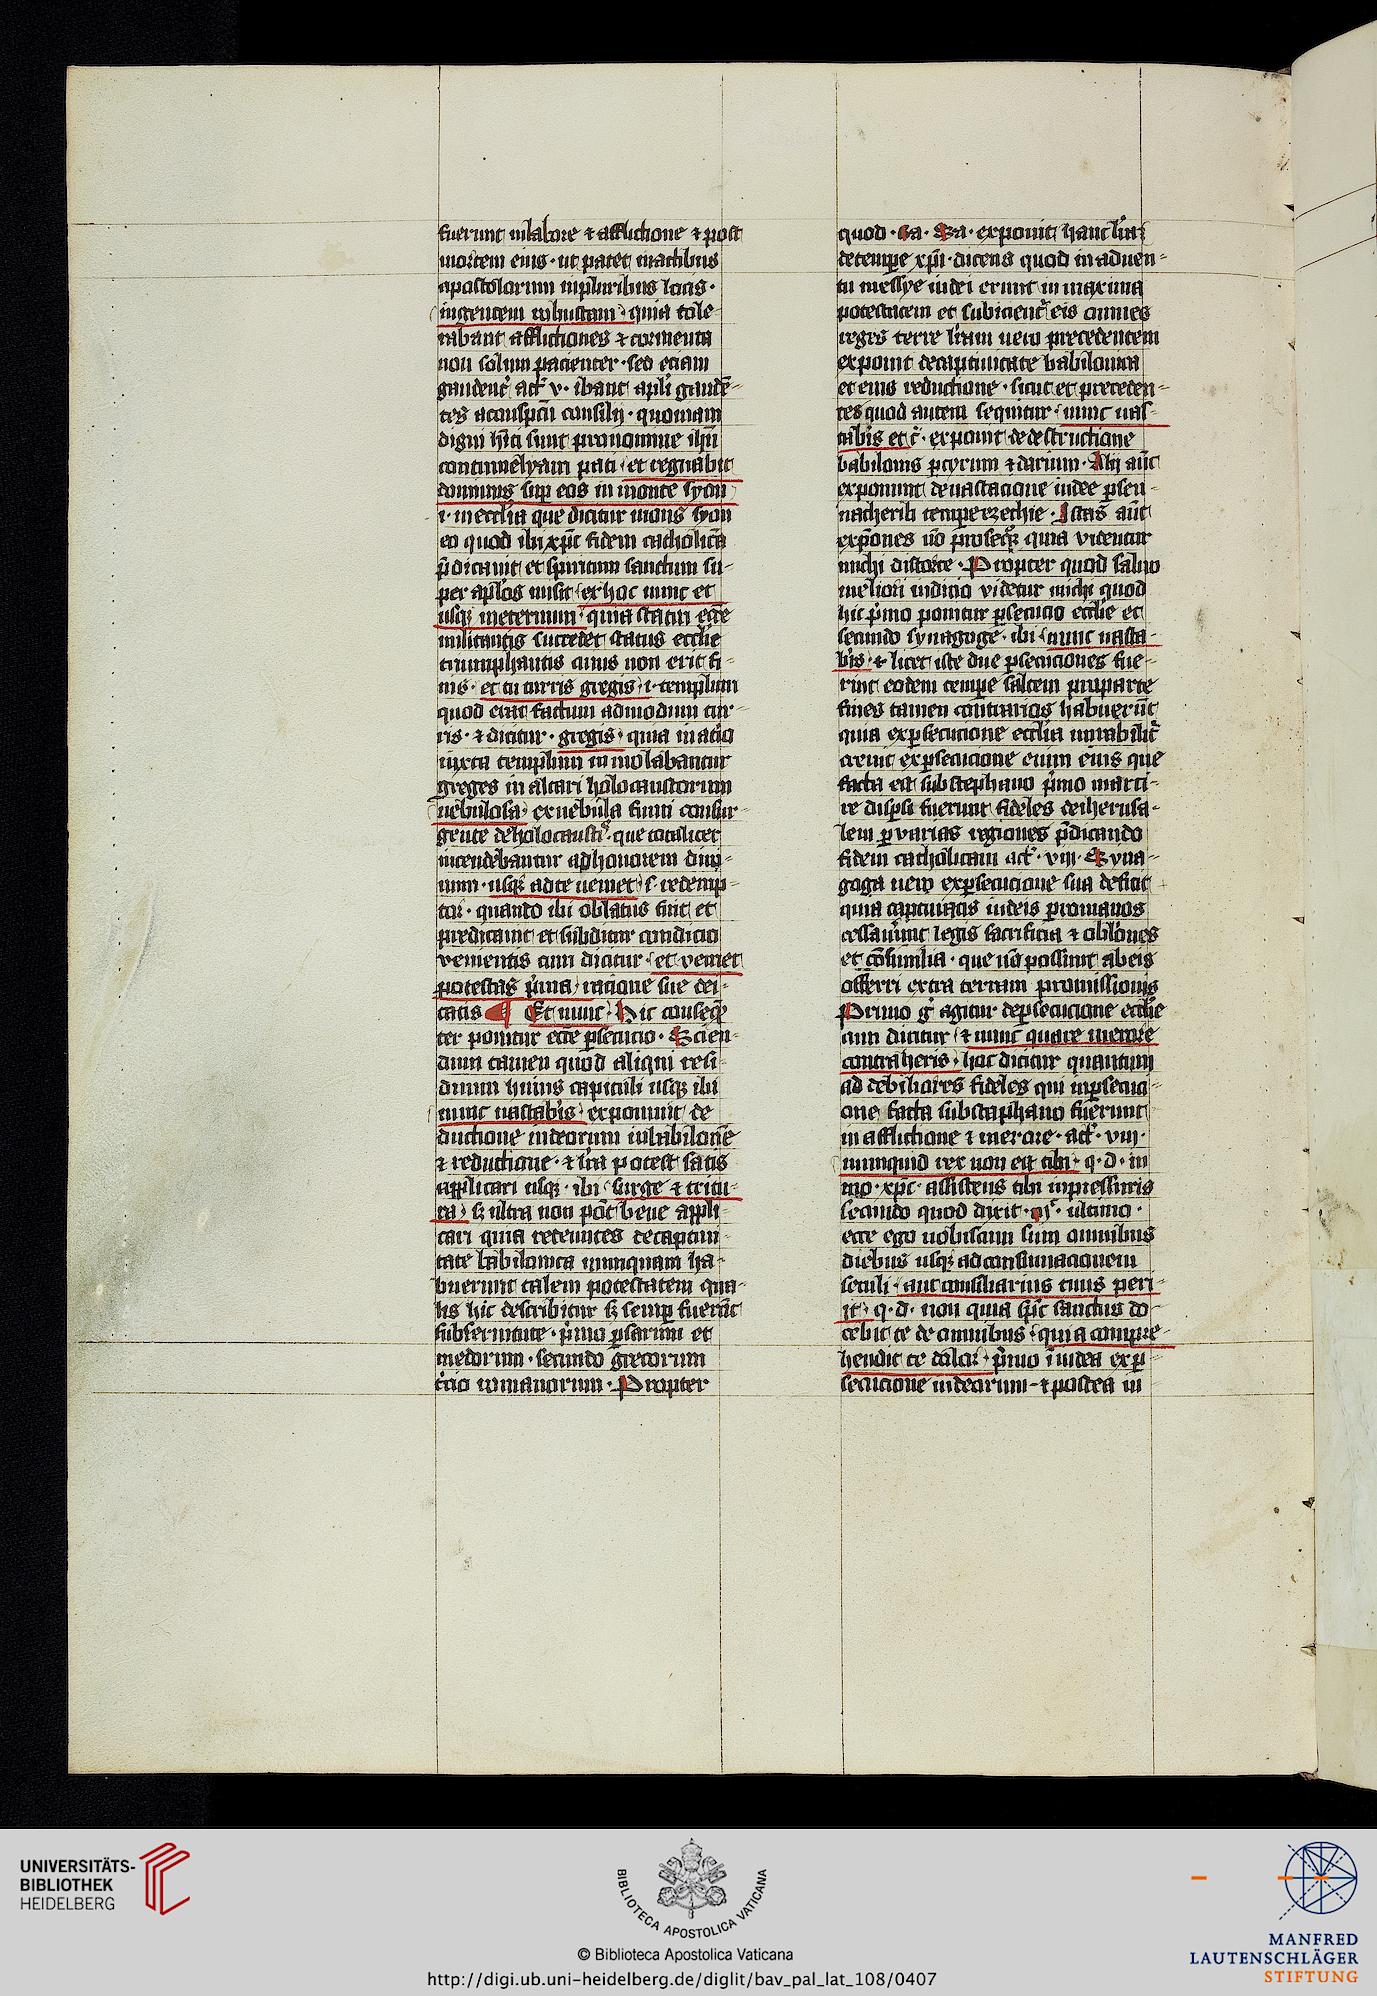 fuerunt in labore ⁊ afflictione ⁊ post
mortem eius · ut patet in actibus
apostolorum in pluribus locis ·
in gentem robustam · quia tole-
rabant afflictiones ⁊ tormenta
non solum pacienter · sed etiam
gaudent̾ act̾ v · ibant apl̾i gaudē-
tes a conspc̄u consilij · quoniam
digni hīti sunt pro nomine ihū
contumelyam pati · et regnabit
dominus sup̱ eos in monte syon
·i· in ecc̄lia que dicitur mons syon
eo quod ibi xp̄c fidem catholicā
p̄dicauit et spiritum sanctum su-
per ap̄los misit · ex hoc nunc et
usq₃ in eternum · quia statui ecc̄e
militantis succedet status ecclīe
triumphantis cuius non erit fi-
nis · et tu turris gregis ·i· templum
quod erat factum ad modum tur-
ris · ⁊ dicitur · gregis · quia in atrio
iuxta templum immolabantur
greges in altari holocaustorum
nebulosa · ex nebula fumi consur-
gente de holocaustis · que totaliter
incendebantur ad honorem diui-
num · usq₃ ad te ueniet · s· redemp-
tor · quando ibi oblatus fuit et
predicauit et subditur condicio
venientis cum dicitur · et veniet
potestas p̾ma · ratione sue dei-
tatis ¶ Et nunc · Hic conseq̄n
ter ponitur ecc̄e p̱secucio · Scien-
dum tamen quod aliqui resi-
duum huius capituli usq₃ ibi
nunc uastab̾is · exponunt de
ductione iudeorum in babilonē
⁊ reductione · ⁊ lr̄a potest satis
applicari usq₃ · ibi · surge ⁊ tritu-
ra · s₃ ultra non pōt bene appli-
cari quia redeuntes de captiui-
tate babilonica nunquam ha-
buerunt talem potestatem qua-
lis hic describitur s₃ semp̱ fuerūt
sub seruitute · p̾mo p̱sarum et
medorum · secundo grecorum
t̾cio romanorum · Propter
quod · Ra · Sa · exponit hanc lr̄am
de temp̱e xp̄i · dicens quod in aduen-
tu messye iudei erunt in maxima
potestatem et subicient̾ eis omnes
reges terre lr̄am uero precedentem
exponit de captiuitate babilonica
et eius reductione · sicut et preceden-
tes quod autem sequitur · nunc uas-
tab̾is et c̄ · exponit de destructione
babilonis p̱ cyrum ⁊ darium · Alij aūt
exponunt de uastacione iudee p̱ sen-
nacherib temp̱e ezechie · Istas aūt
exp̄ones nō prosequor quia videntur
michi distorte · Propter quod saluo
meliori iudicio videtur michi quod
hic p̾mo ponitur p̱secucio ecclīe et
secundo synagoge · ibi · nunc uasta-
b̾is · ⁊ licet iste due p̱secuciones fue-
rint eodem temp̱e saltem pro parte
fines tamen contrarios habuerūt
quia ex p̱secucione ecc̄lia mirabilit̾
creuit ex p̱secucione enim eius que
facta est sub stephano p̾mo marti-
re disp̱si fuerunt fideles de iherusa-
lem p̱ varias regiones p̄dicando
fidem catholicam act̾ · viij · Syna-
goga uero ex p̱secucione sua deficit
quia captiuatis iudeis p̱ romanos
cessauerunt legis sacrificia ⁊ obl̄ones
et cōsimilia · que nō possunt ab eis
offerri extra terram promissionis
Primo g̾ agitur de p̱secucione ecclīe
cum dicitur · ⁊ nunc quare merore
contraheris · hoc dicitur quantum
ad debiliores fideles qui in p̱secuci-
one facta sub staphano fuerunt
in afflictione ⁊ merore · act̾ · viij ·
nunquid rex non est tibi · q · d · im
mo · xp̄c · assistens tibi in pressuris
secundo quod dixit · m̾ · ultimo ·
ecce ego uobiscum sum omnibus
diebus usq₃ ad consummacionem
seculi · aut consiliarius tuus peri-
it · q · d · non quia sp̄c sanctus do-
cebit te de omnibus · quia compre-
hendit te dolor · p̾mo ī iudea ex p̱-
secucione iudeorum · ⁊ postea in
UNIVERSITÄTS-
BIBLIOTHEK
HEIDELBERG
BIBLIOTECA APOSTOLICA VATICANA
© Biblioteca Apostolica Vaticana
http://digi.ub.uni-heidelberg.de/diglit/bav_pal_lat_108/0407
MANFRED
LAUTENSCHLÄGER
STIFTUNG